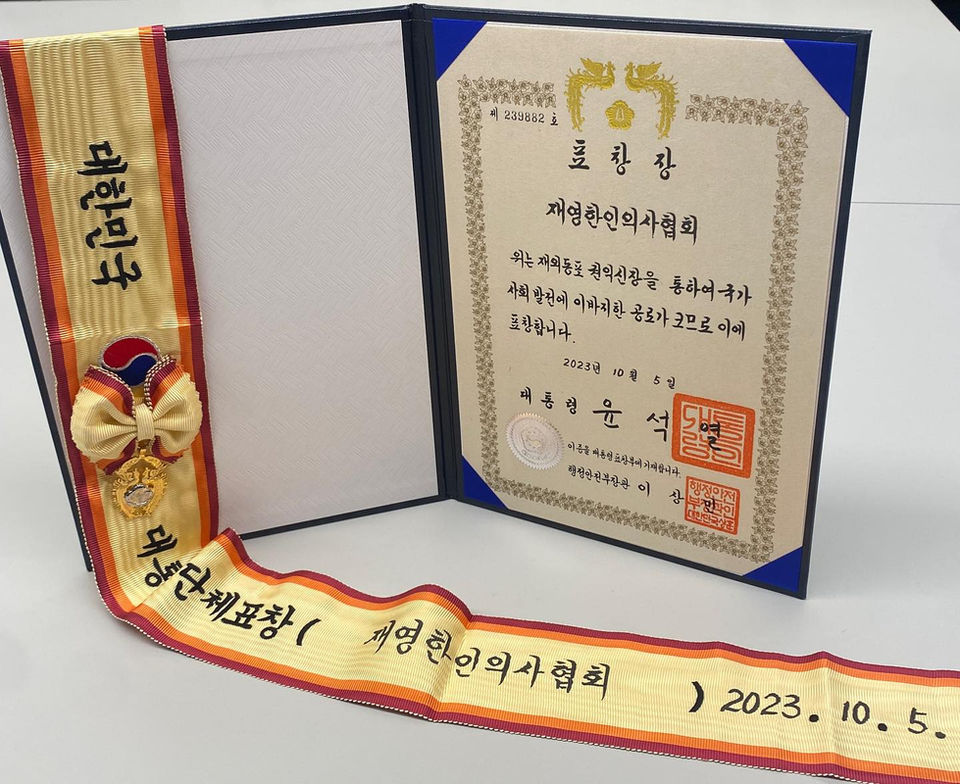 대한민국
대통단체표창 ( 재영한인의사협회 ) 2023. 10. 5.
제 239882 호
표창장
재영한인의사협회
위는 재외동포 권익신장을 통하여 국가
사회 발전에 이바지한 공로가 크므로 이에
표창합니다.
2023년 10월 5일
대통령 윤석열
이 증을 대통령표창부에 기재합니다.
행정안전부장관 이상민